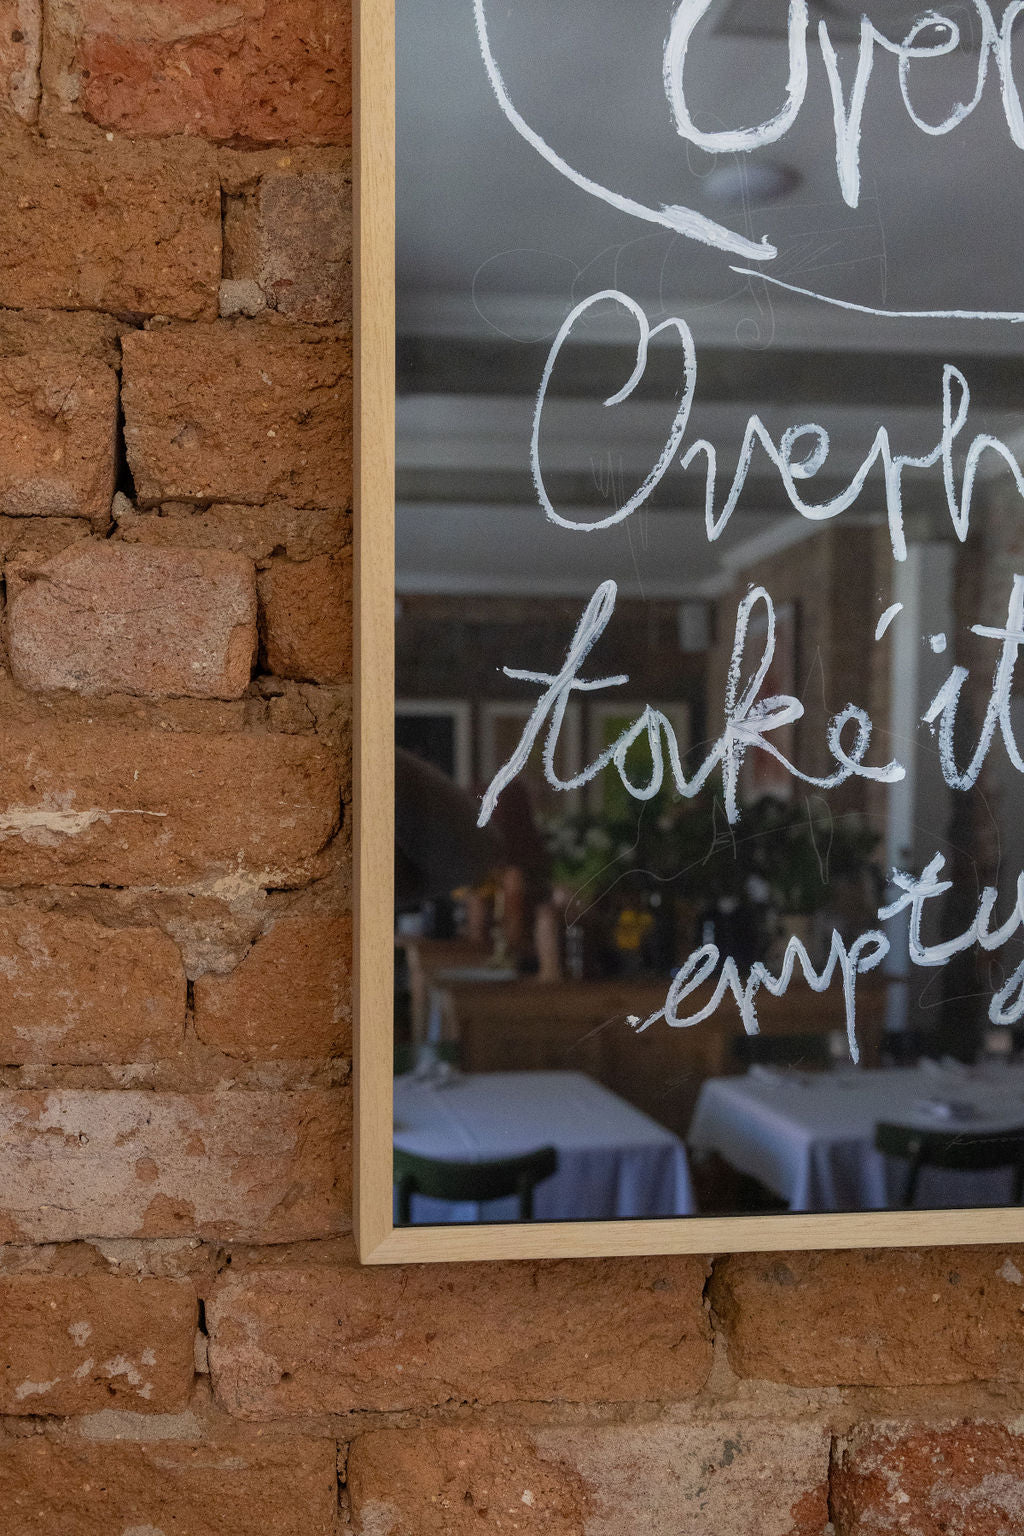 Over
Overh
take 'it
empty